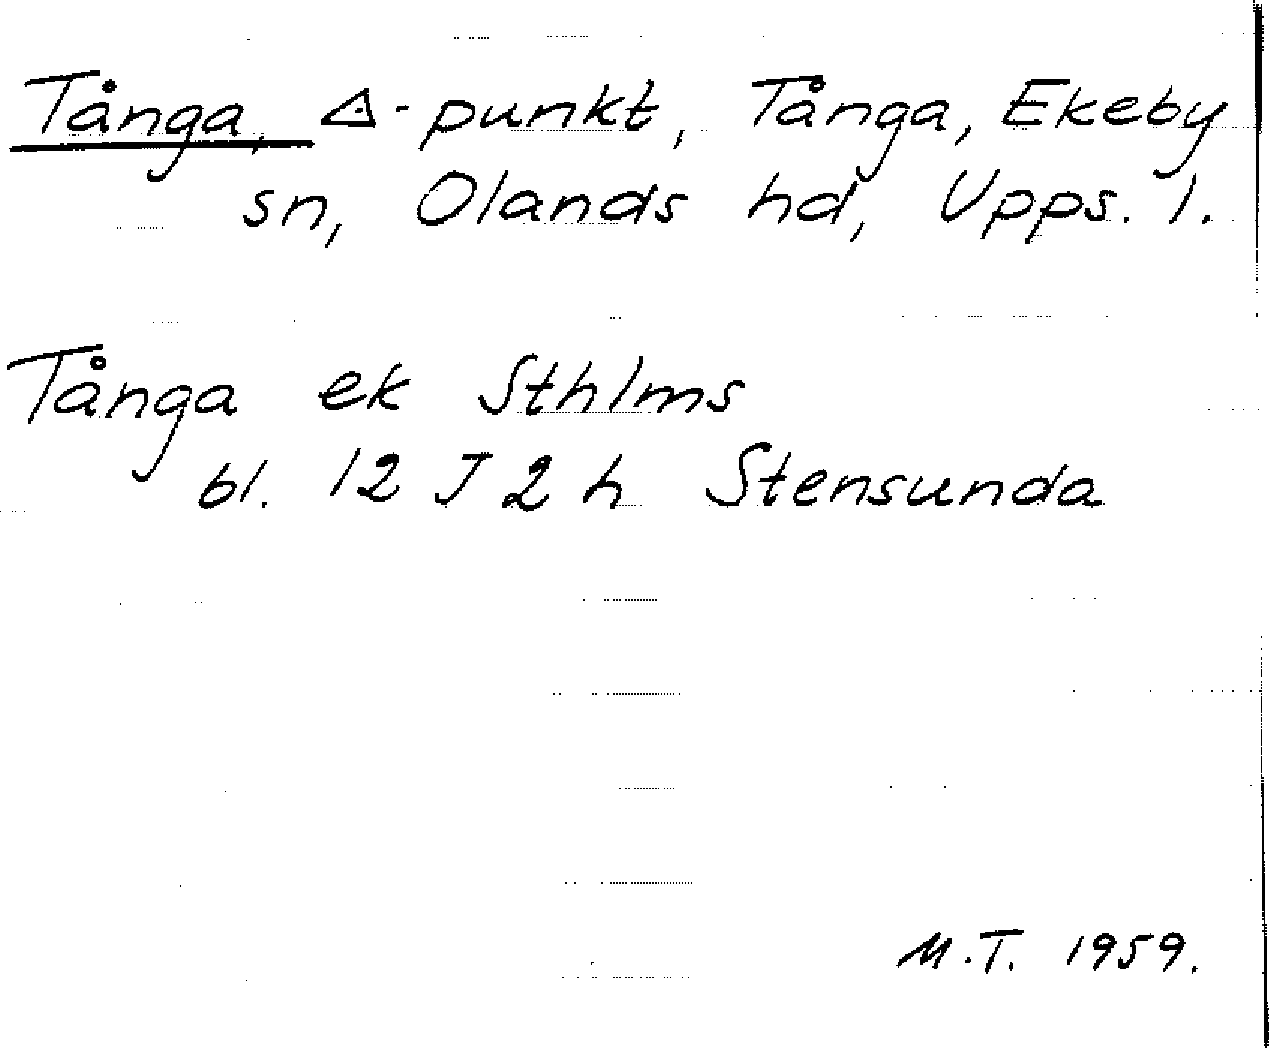 Tånga, △-punkt, Tånga, Ekeby
sn, Olands hd, Upps. l.
Tånga ek Sthlms
bl. 12 J 2 h Stensunda
M.T. 1959.